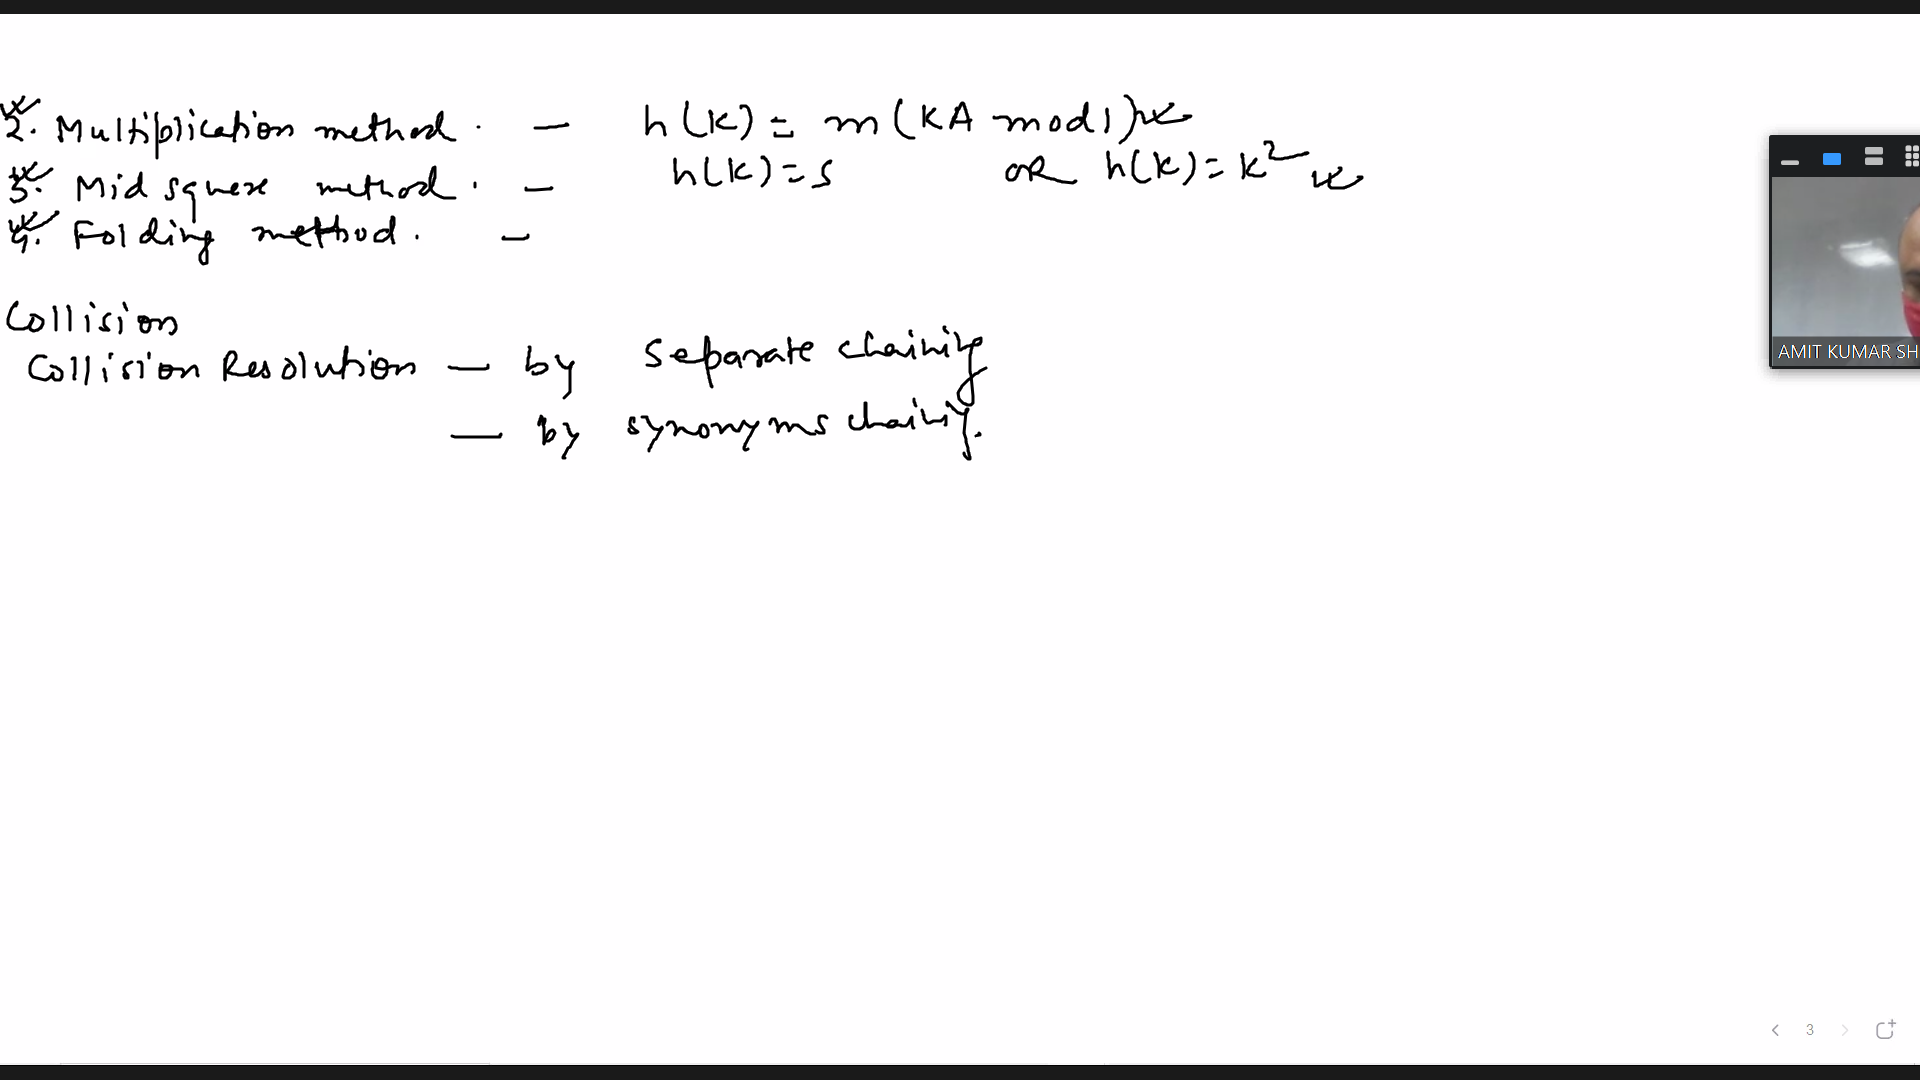 2. Multiplication method. — h(k) = m(KA mod 1)
3. Mid square method. — h(k) = s OR h(k) = k²
4. Folding method. —
Collision
Collision Resolution — by separate chaining
— by synonyms chaining.
AMIT KUMAR SH
3